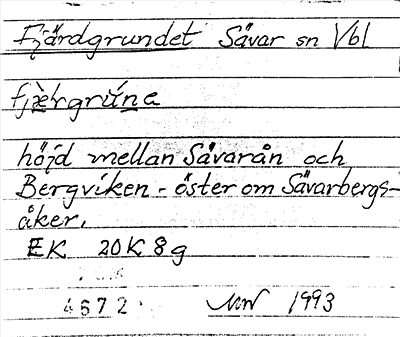 Fjärdgrundet Sävar sn Vbl
fjæ̀rgrúne
höjd mellan Sävarån och
Bergviken - öster om Sävarbergs-
åker.
EK 20K 8g
4672
1993